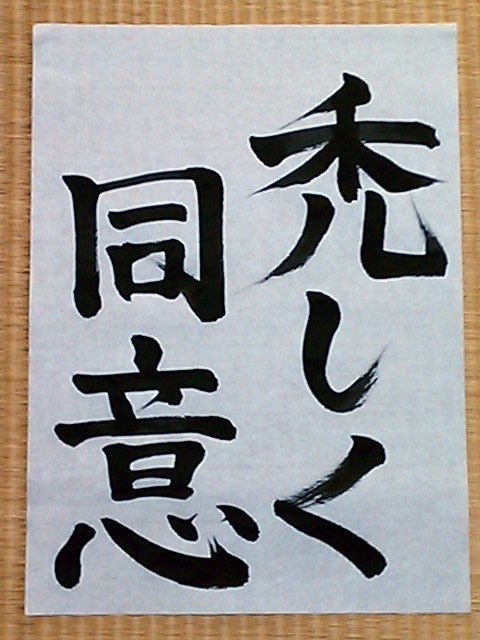 禿しく
同意